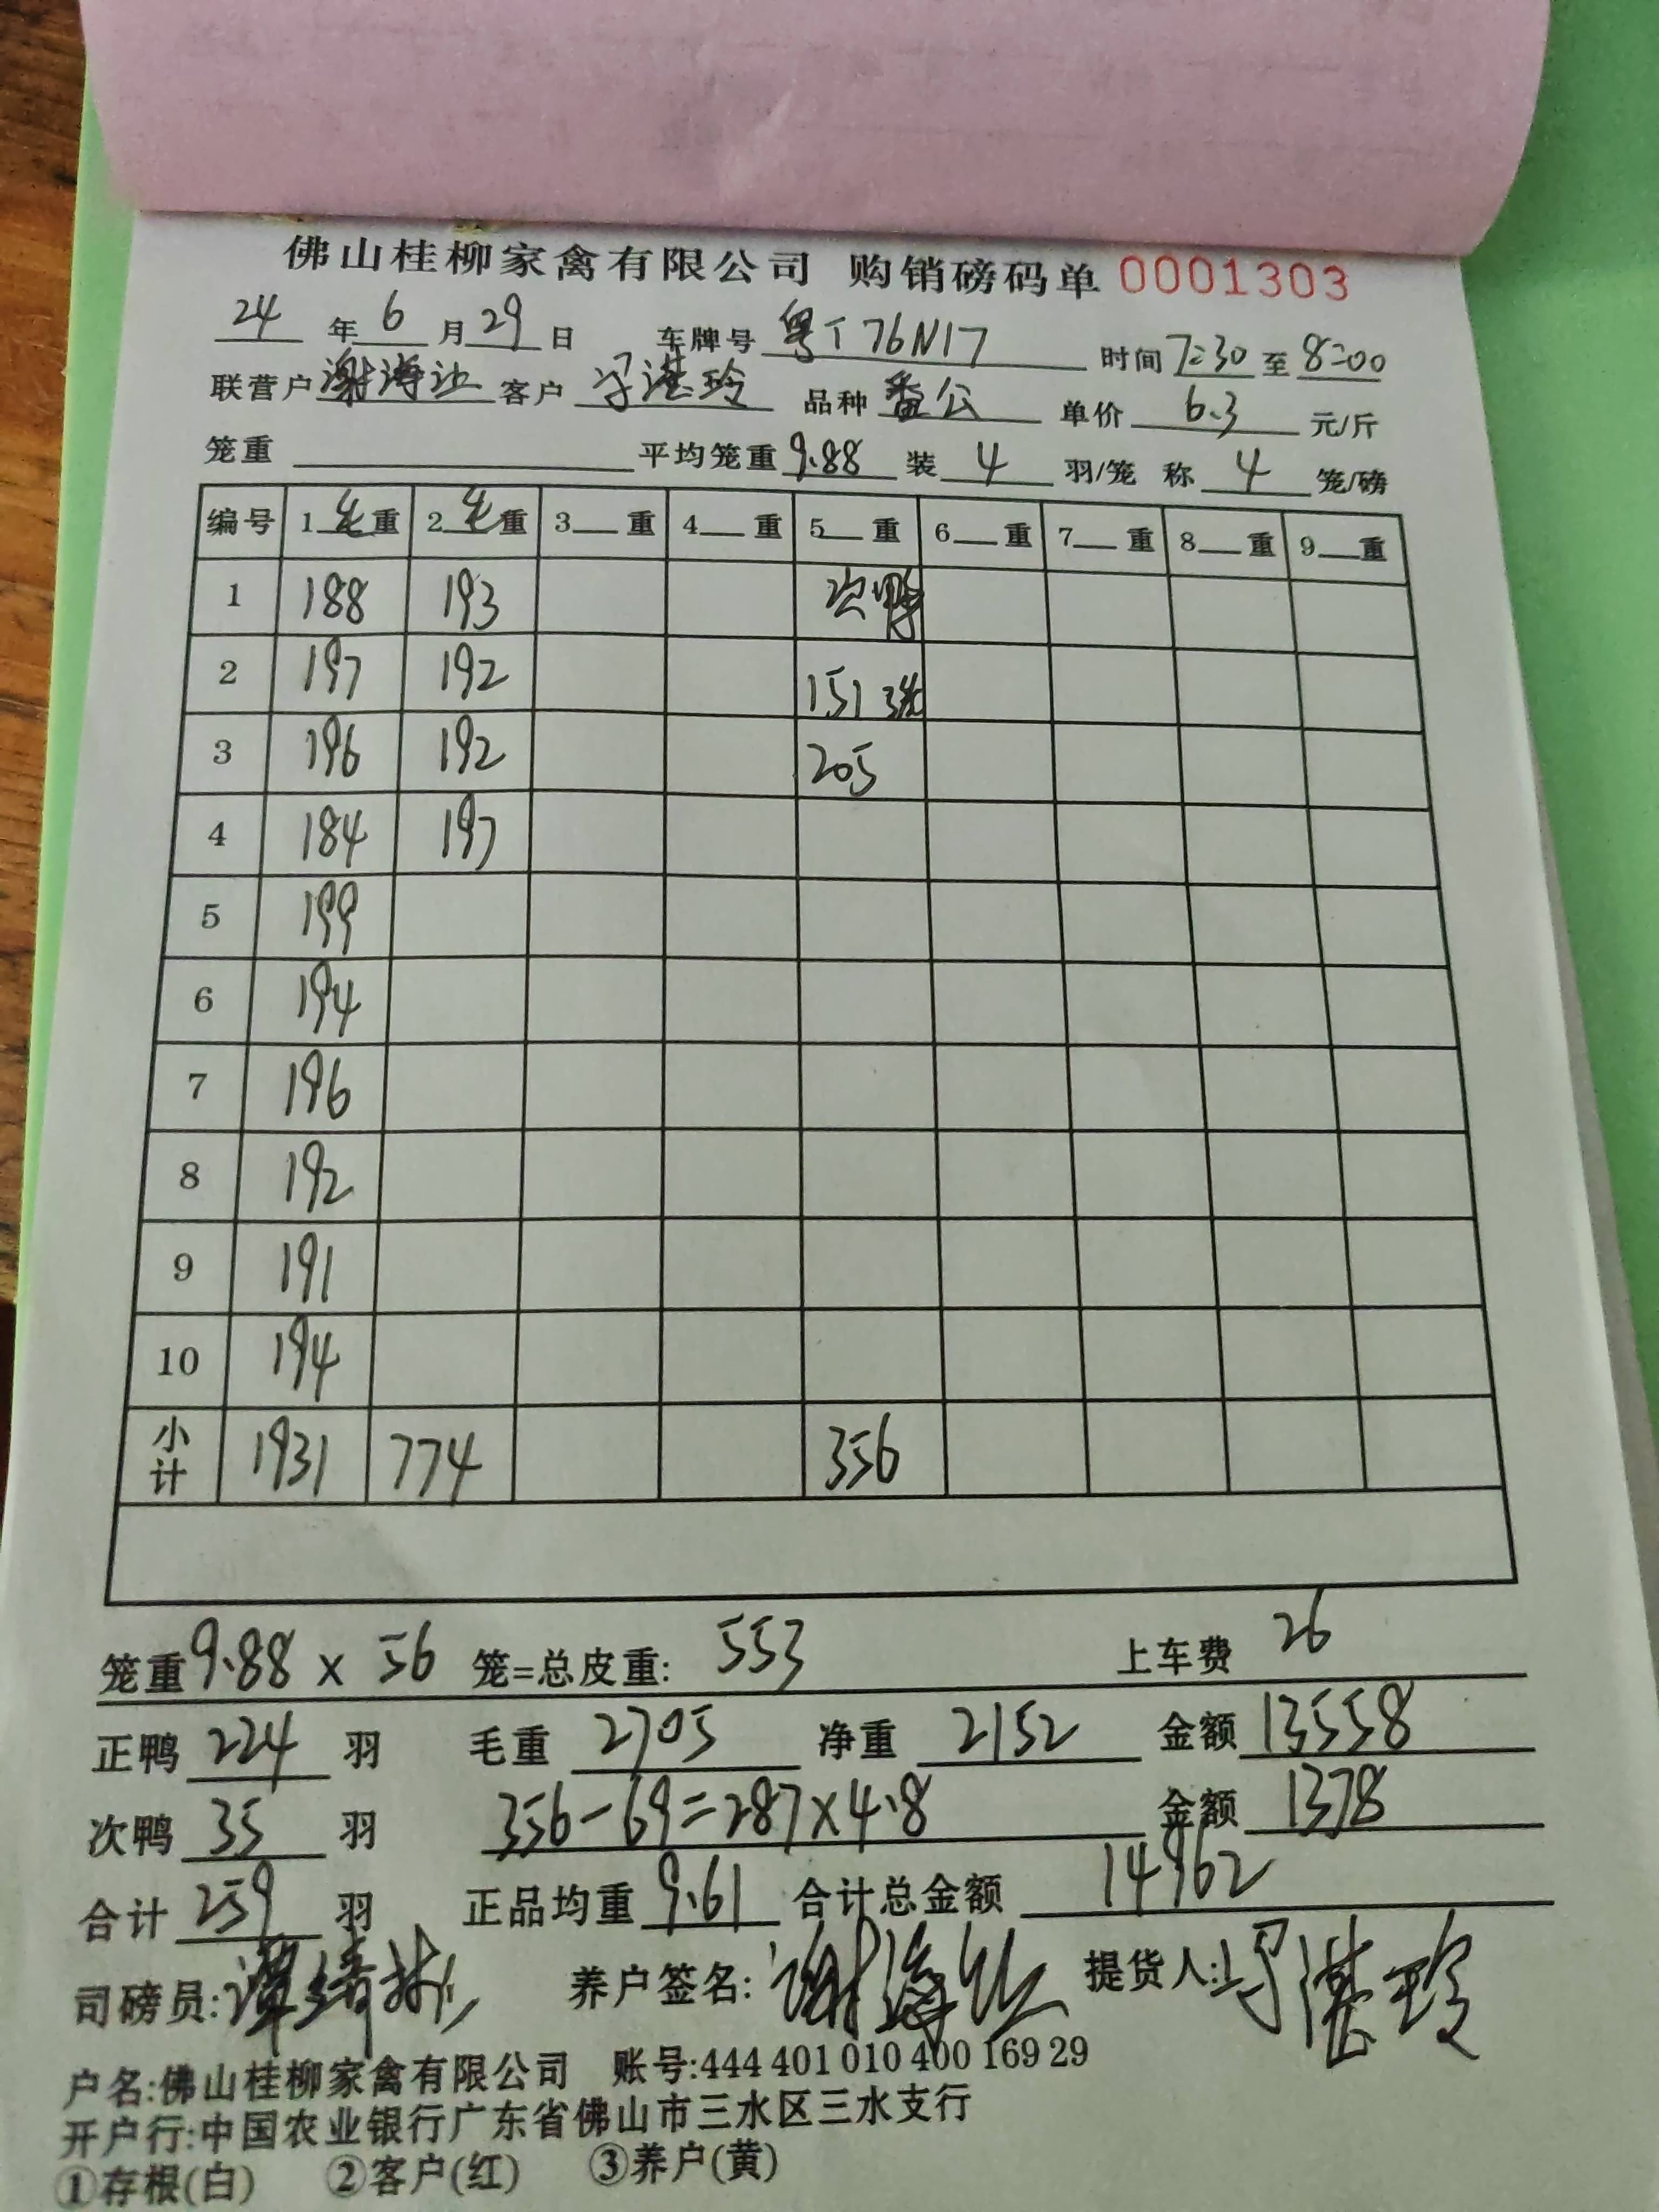 佛山桂柳家禽有限公司 购销磅码单 0001303
24 年 6 月 29 日 车牌号 粤T76N17 时间 7:30 至 8:00
联营户 谢海 客户 湛玲 品种 番公 单价 6.3 元/斤
笼重 平均笼重 9.88 装 4 羽/笼 称 4 笼/磅
编号 1 毛 重 2 毛 重 3 重 4 重 5 重 6 重 7 重 8 重 9 重
1 188 193 次鸭
2 197 192 151
3 196 192 205
4 184 197
5 199
6 194
7 196
8 192
9 191
10 194
小计 1931 774 356
笼重 9.88 x 56 笼=总皮重: 553 上车费 26
正鸭 224 羽 毛重 2705 净重 2152 金额 13558
次鸭 35 羽 356-69=287×4.8 金额 1378
合计 259 羽 正品均重 9.61 合计总金额 14962
司磅员: 养户签名: 谢海 提货人: 湛玲
户名:佛山桂柳家禽有限公司 账号:444 401 010 400 169 29
开户行:中国农业银行广东省佛山市三水区三水支行
①存根(白) ②客户(红) ③养户(黄)